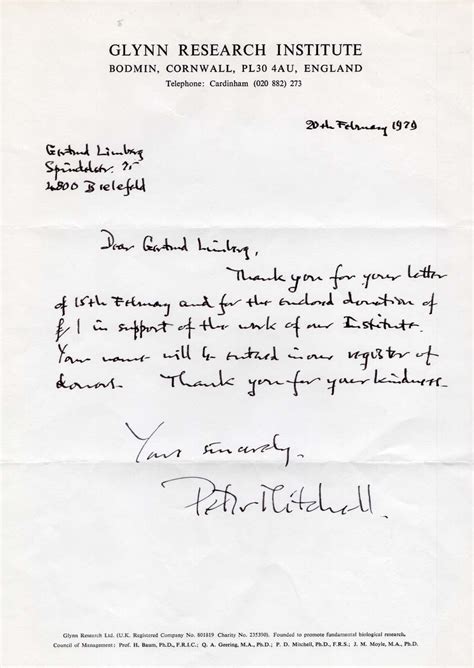 GLYNN RESEARCH INSTITUTE
BODMIN, CORNWALL, PL30 4AU, ENGLAND
Telephone: Cardinham (020 882) 273
20th February 1979
Gertrud Limberg
Spindelstr. 75
4800 Bielefeld
Dear Gertrud Limberg,
Thank you for your letter
of 15th February and for the enclosed donation of
£1 in support of the work of our Institute.
Your name will be entered in our register of
donors. Thank you for your kindness.
Yours sincerely,
Peter Mitchell.
Glynn Research Ltd. (U.K. Registered Company No. 801819 Charity No. 235390). Founded to promote fundamental biological research.
Council of Management: Prof. H. Baum, Ph.D., F.R.I.C.; Q. A. Geering, M.A., Ph.D.; P. D. Mitchell, Ph.D., F.R.S.; J. M. Moyle, M.A., Ph.D.